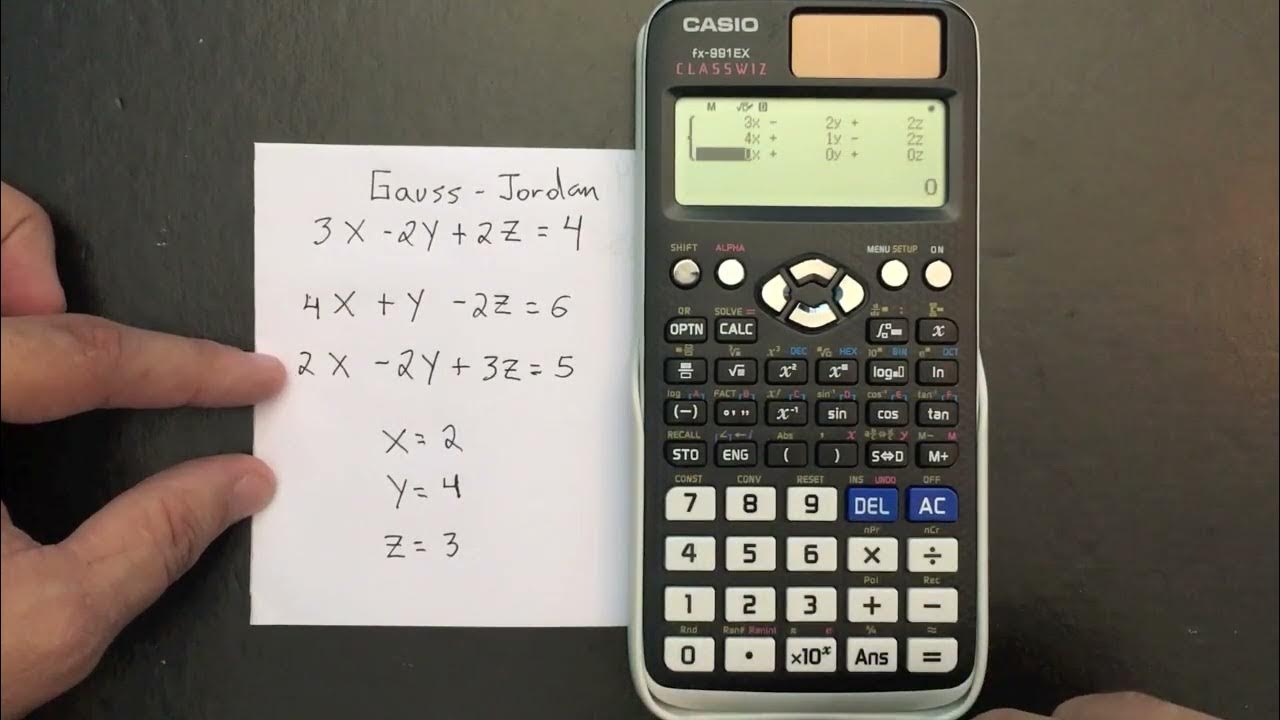 Gauss - Jordan
3X - 2Y + 2Z = 4
4X + Y - 2Z = 6
2X - 2Y + 3Z = 5
X = 2
Y = 4
Z = 3
CASIO
fx-991EX
CLASSWIZ
M
3x - 2y + 2z
4x + 1y - 2z
x + 0y + 0z
0
SHIFT ALPHA MENU SETUP ON
QR SOLVE =
OPTN CALC x
x³ DEC HEX BIN OCT
√ x² log ln
log A FACT B x! C sin⁻¹ D cos⁻¹ E tan⁻¹ F
(−) x⁻¹ sin cos tan
RECALL Abs , x y M− M
STO ENG ( ) S⇔D M+
CONST CONV RESET INS UNDO OFF
7 8 9 DEL AC
nPr nCr
4 5 6 × ÷
Pol Rec
1 2 3 + −
Rnd Ran# RanInt π e
0 • ×10ˣ Ans =